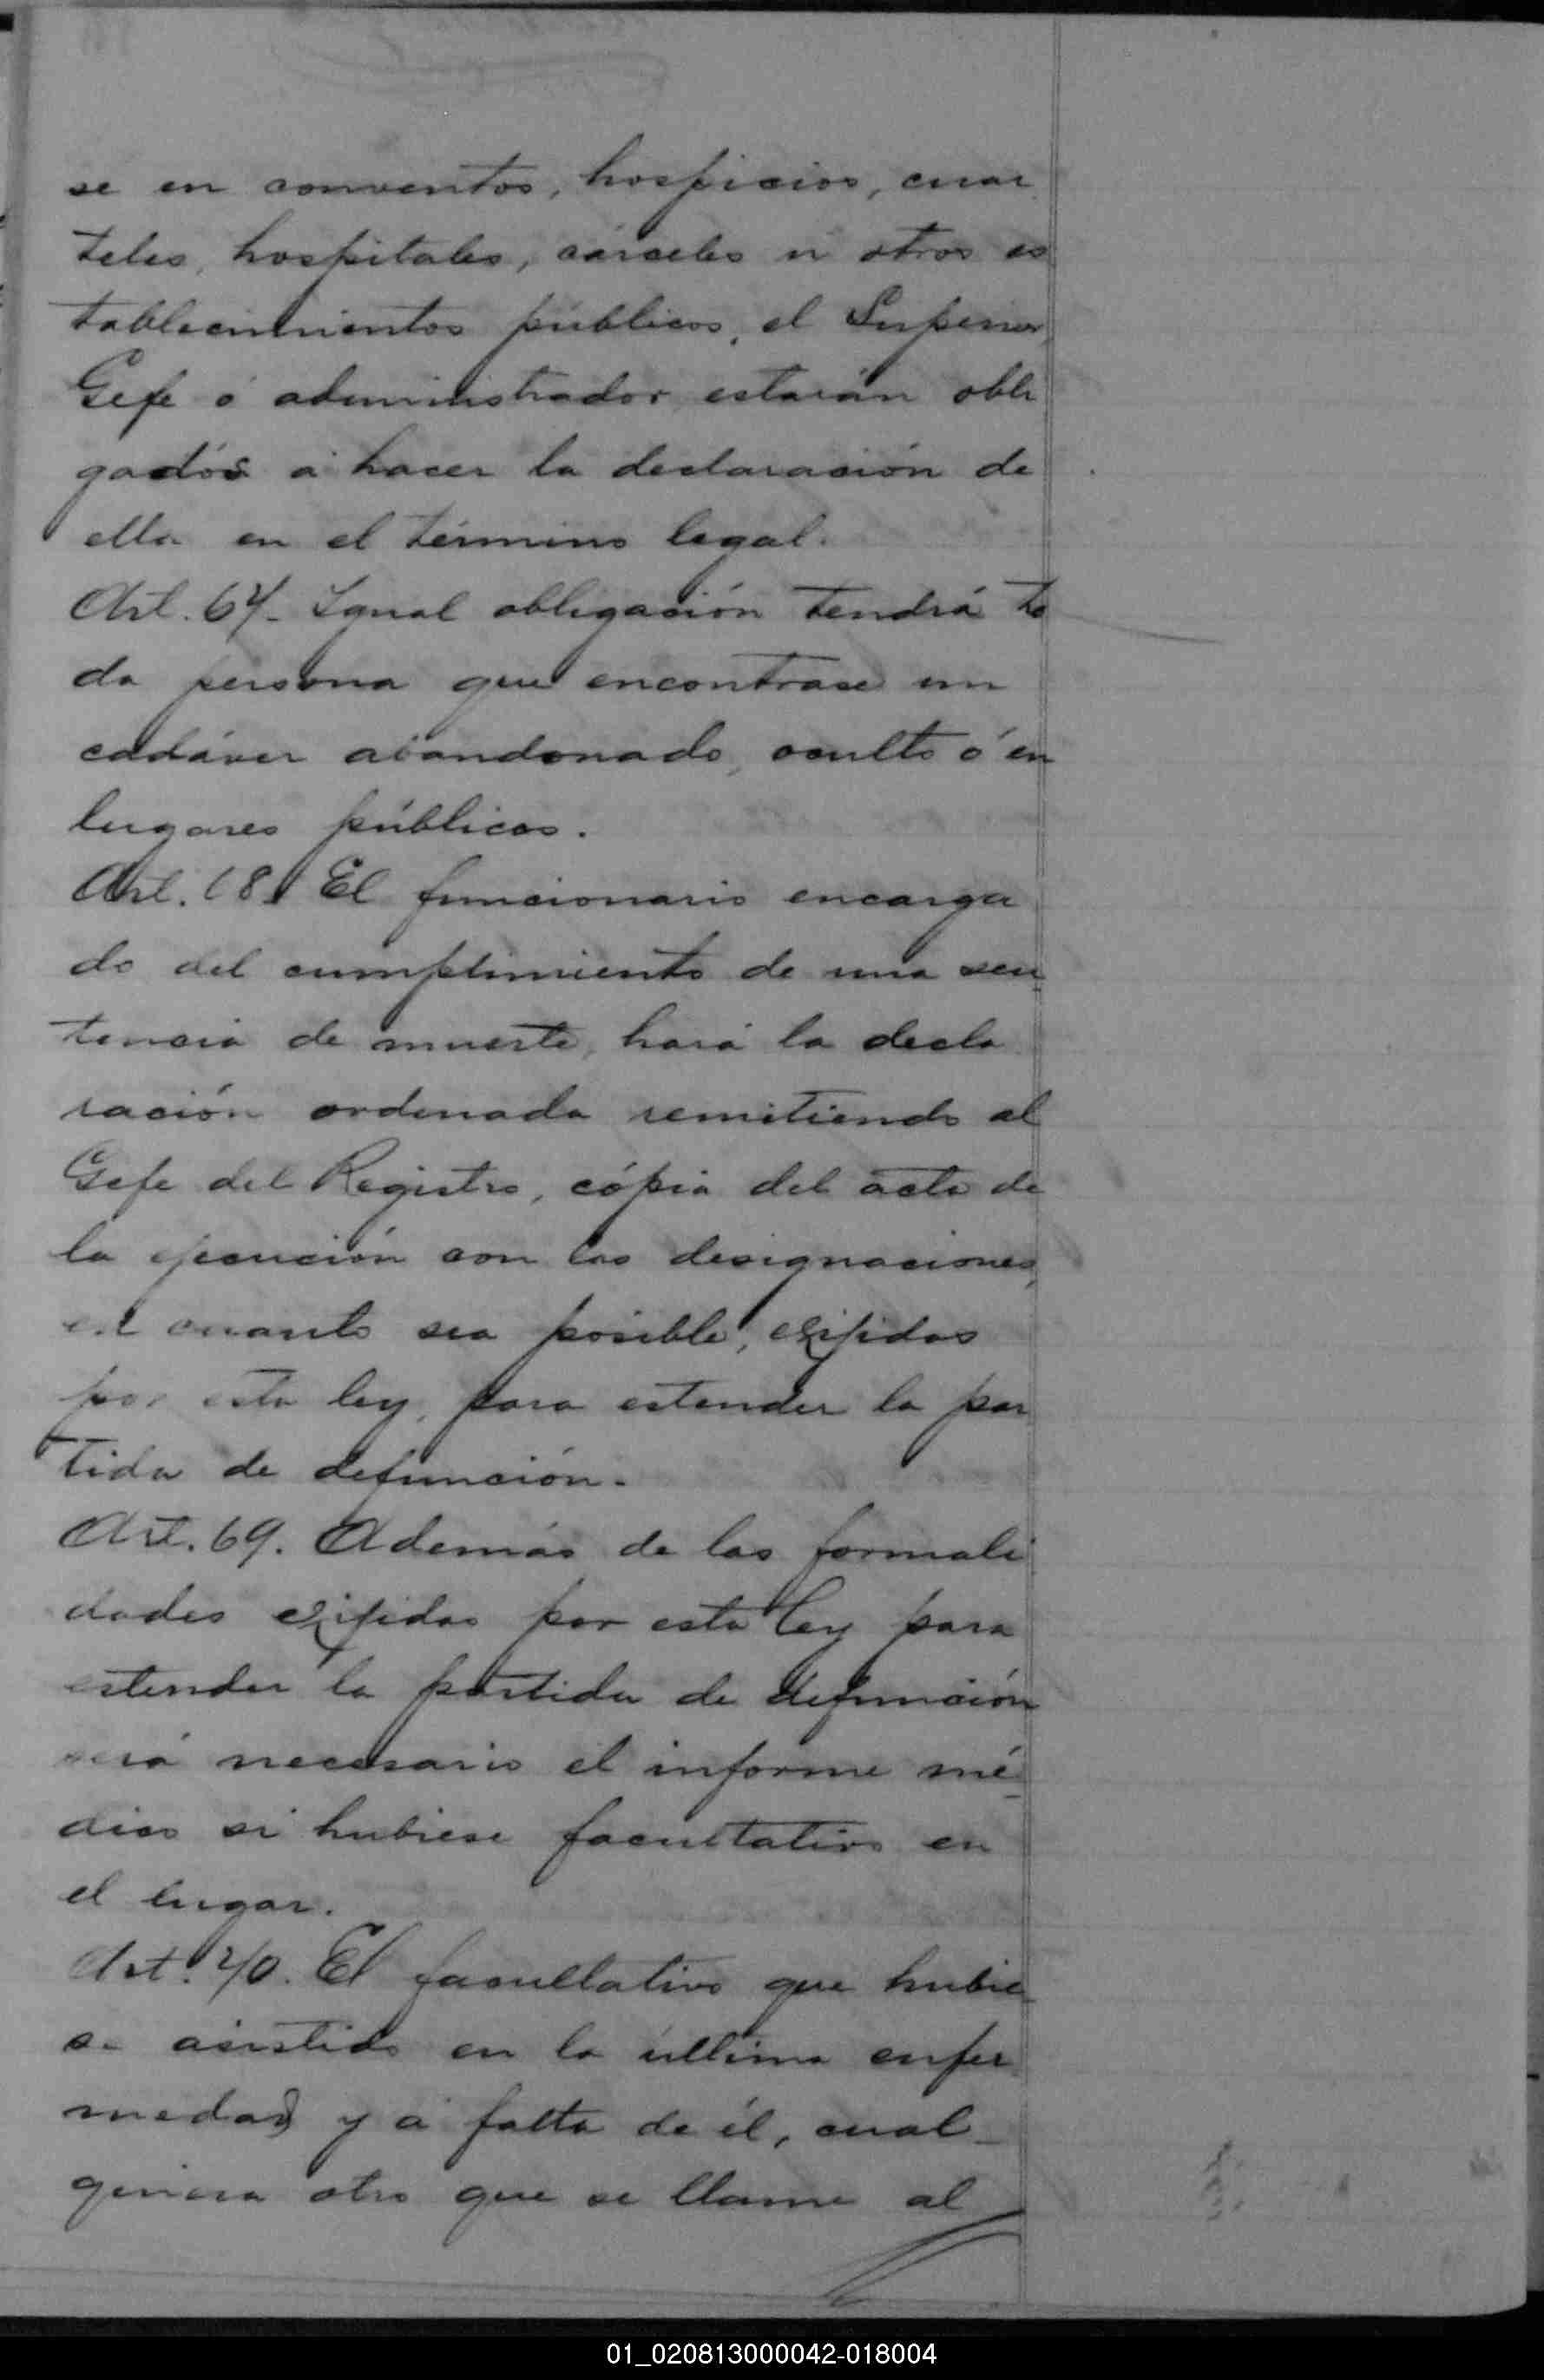 se en conventos, hospicios, cuar
teles, hospitales, cárceles ú otros es
tablecimientos públicos, el Superior,
Gefe ó administrador estarán obli
gados á hacer la declaración de
ella en el término legal.
Art. 67. Igual obligación tendrá to
da persona que encontrase un
cadáver abandonado, oculto ó en
lugares públicos.
Art. 68. El funcionario encarga
do del cumplimiento de una sen
tencia de muerte, hará la decla
ración ordenada remitiendo al
Gefe del Registro, cópia del acta de
la ejecución con las designaciones,
en cuanto sea posible, exijidas
por esta ley, para estender la par
tida de defunción.
Art. 69. Además de las formali
dades exijidas por esta Ley para
estender la partida de defunción
será necesario el informe mé
dico si hubiese facultativo en
el lugar.
Art. 70. El facultativo que hubie
se asistido en la última enfer
medad y á falta de él, cual-
quiera otro que se llame al
01_020813000042-018004